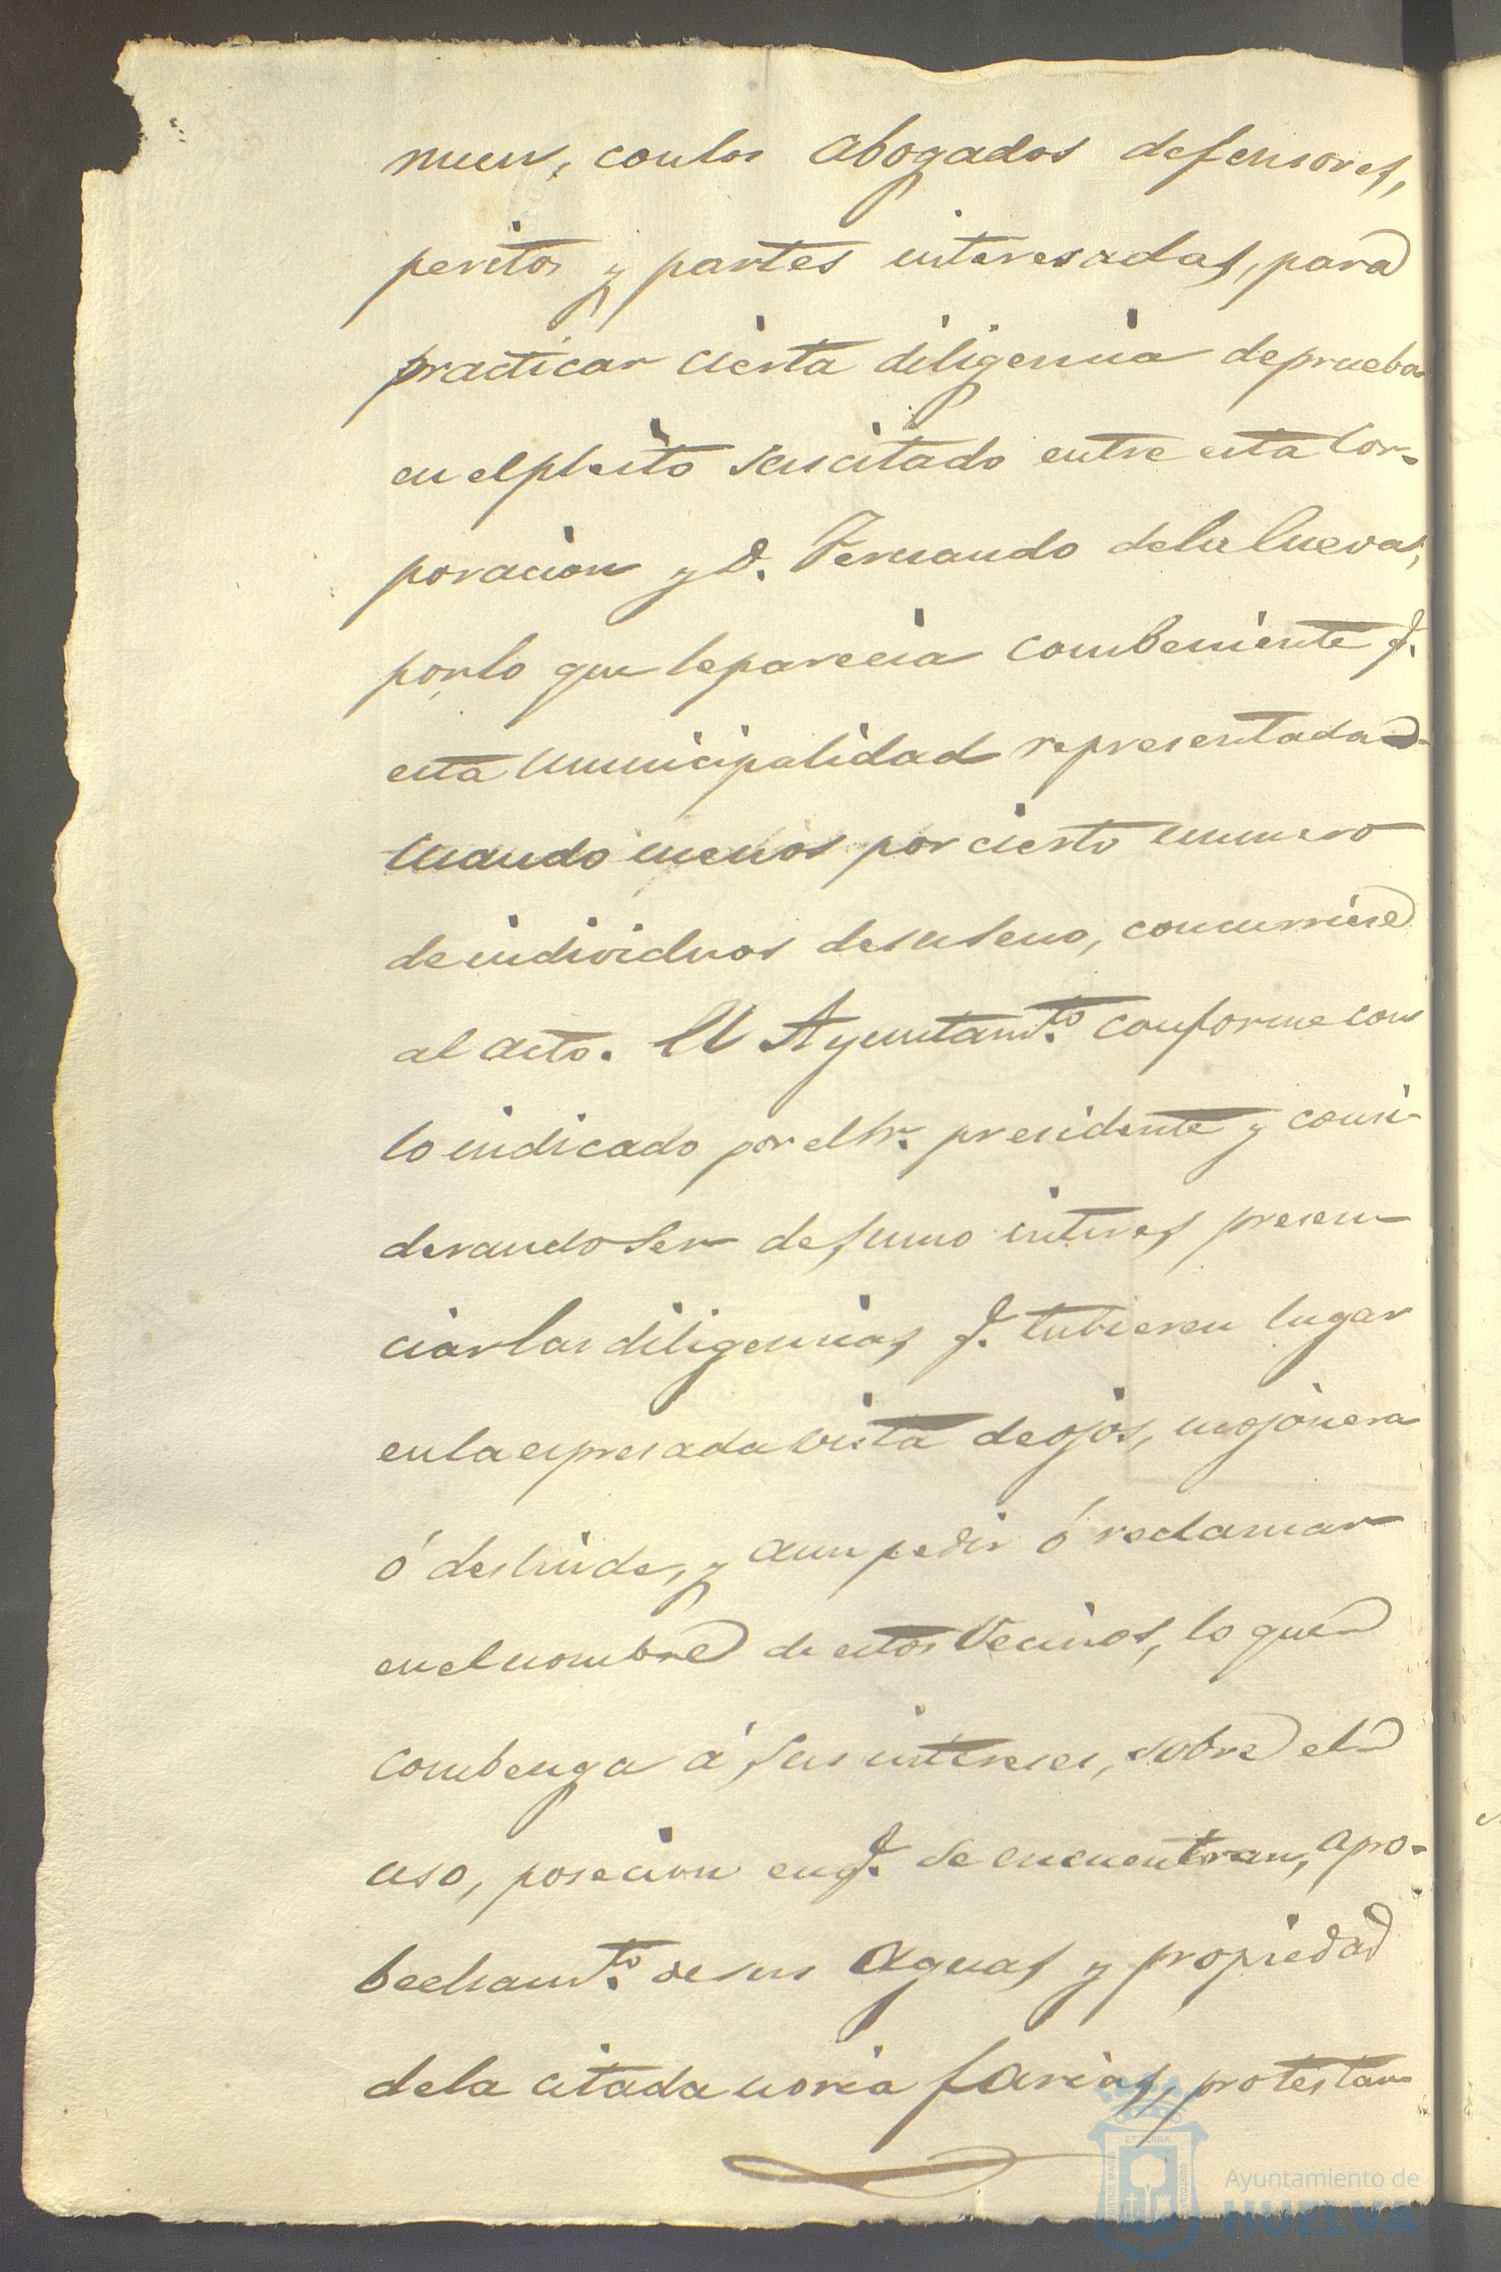 nuen, con los Abogados defensores,
peritos y partes interesadas, para
practicar cierta diligencia de prueba
en el pleito suscitado entre esta Cor-
poracion y D. Fernando de la Cueva,
por lo que le parecia combeniente q.
esta Municipalidad representada
cuando menos por cierto numero
de individuos de su seno, concurriese
al acto. El Ayuntamto. conforme con
lo indicado por el Sr. presidente y consi-
derando ser de sumo interes presen-
ciar las diligencias q. tubieren lugar
en la espresada vista de ojos, mojonera
ó deslinde, y aun pedir ó reclamar
en el nombre de estos Vecinos, lo que
combenga á sus intereses, sobre el
uso, posecion en q. se encuentran, apro-
bechamto. de sus Aguas y propiedad
de la citada noria farias, protestan
Ayuntamiento de
HUELVA